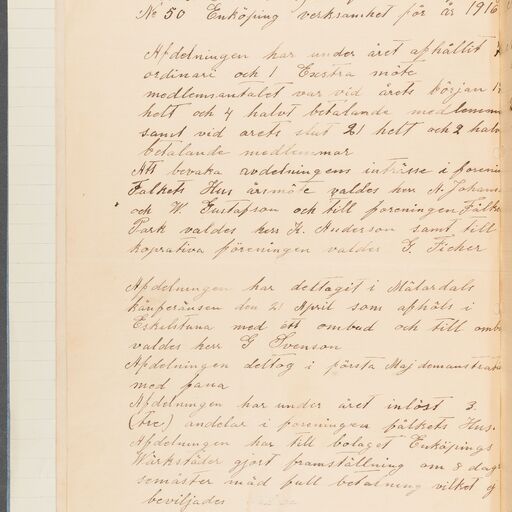 No 50 Enköping verksamhet för år 1916
Afdelningen har under året afhållit
ordinari och 1 Exstra möte
medlemsantalet var vid årets början
helt och 4 halvt betalande medlemmar
samt vid årets slut 21 helt och 2 halv
betalande medlemmar
Att bevaka avdelningens inträsse i förenin
Falkets Hus årsmöte valdes herr N. Johans
och W. Gustafson och till föreningen Fålke
Park valdes herr K. Anderson samt till
koprativa föreningen valdes G. Ficher
Afdelningen har deltagit i Mälardals
kånferänsen den 21 April som afhöls i
Eskelstuna med ett ombud och till omb
valdes herr G Svenson
Afdelningen deltog i första Maj demanstrata
med fana
Afdelningen har under året inlöst 3.
(Tre) andelar i föreningen fålkets Hus.
Afdelningen har till bolaget Enköpings
Wärkstäder gjort framställning om 8 dag
semäster mäd full betalning vilket ej
beviljades